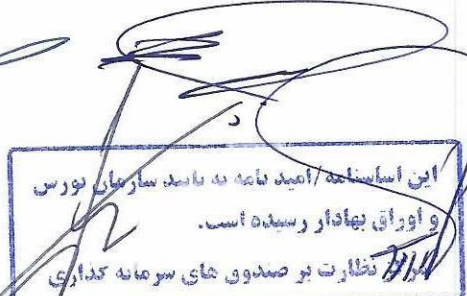 د
این اساسنامه/امید نامه به تایید سازمان بورس
و اوراق بهادار رسیده است.
نظارت بر صندوق های سرمایه گذاری